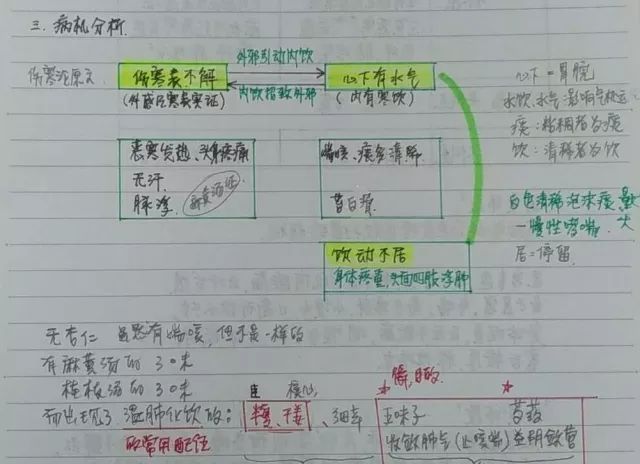 三. 病机分析.
伤寒论原文
伤寒表不解
(外感风寒表实证)
外邪引动内饮
内饮招致外邪
心下有水气
(内有寒饮)
心下=胃脘
水饮.水气:影响气机运
痰:稀稠者为痰
饮:清稀者为饮
恶寒发热、头身疼痛
无汗.
脉浮.
喘咳、痰多清稀
苔白滑
白色清稀泡沫痰 量大
一慢性哮喘.
居=停留.
饮动不居
身体疼重,头面四肢浮肿
无杏仁 虽然有喘咳,但不是一样的
有麻黄汤的 3味
桂枝汤的 3味
而出现了 温肺化饮的:
的常用配伍
核心.
、细辛
目的.
五味子
收敛肺气(止咳喘)